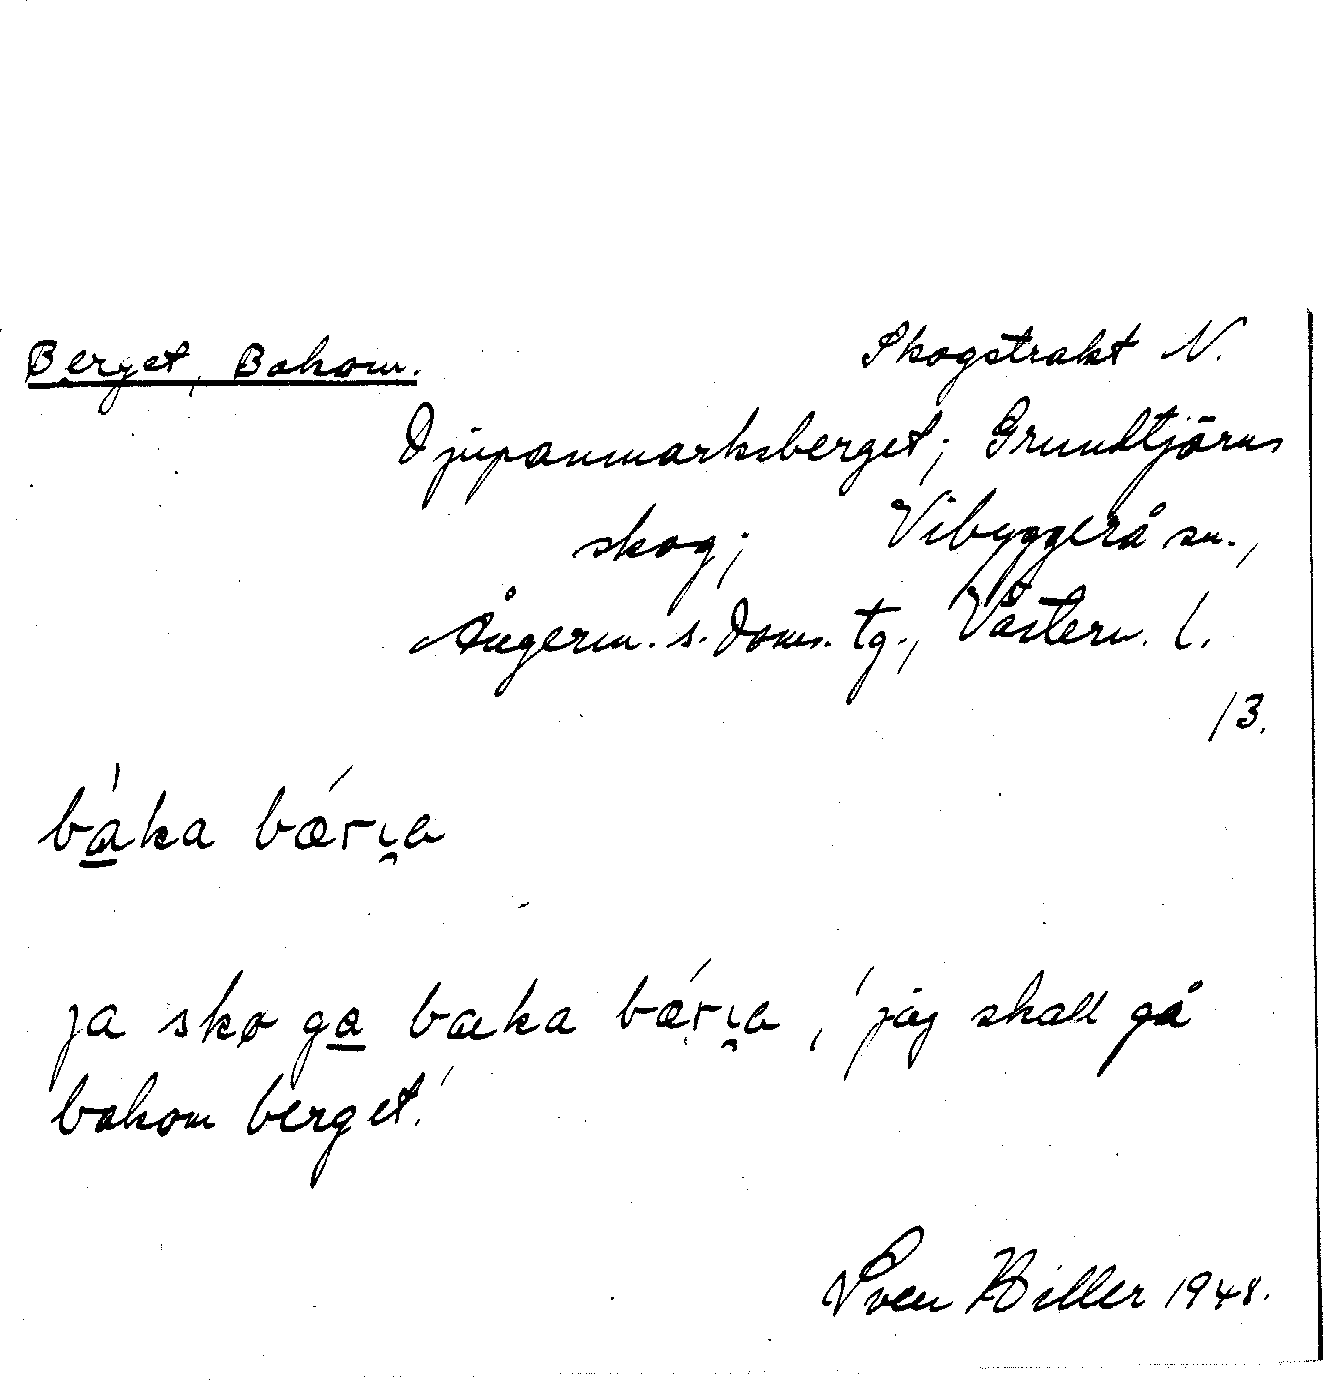 Berget, Bakom.
Skogstrakt N.
Djupanmarksberget; Grundtjärns
skog; Vibyggerå sn.,
Ångerm. s. doms. tg., Västern. l.
13.
báka bǽrı̯a
ja sko ga baka bǽrı̯a, 'jag skall gå
bakom berget.'
Sven Hiller 1948.